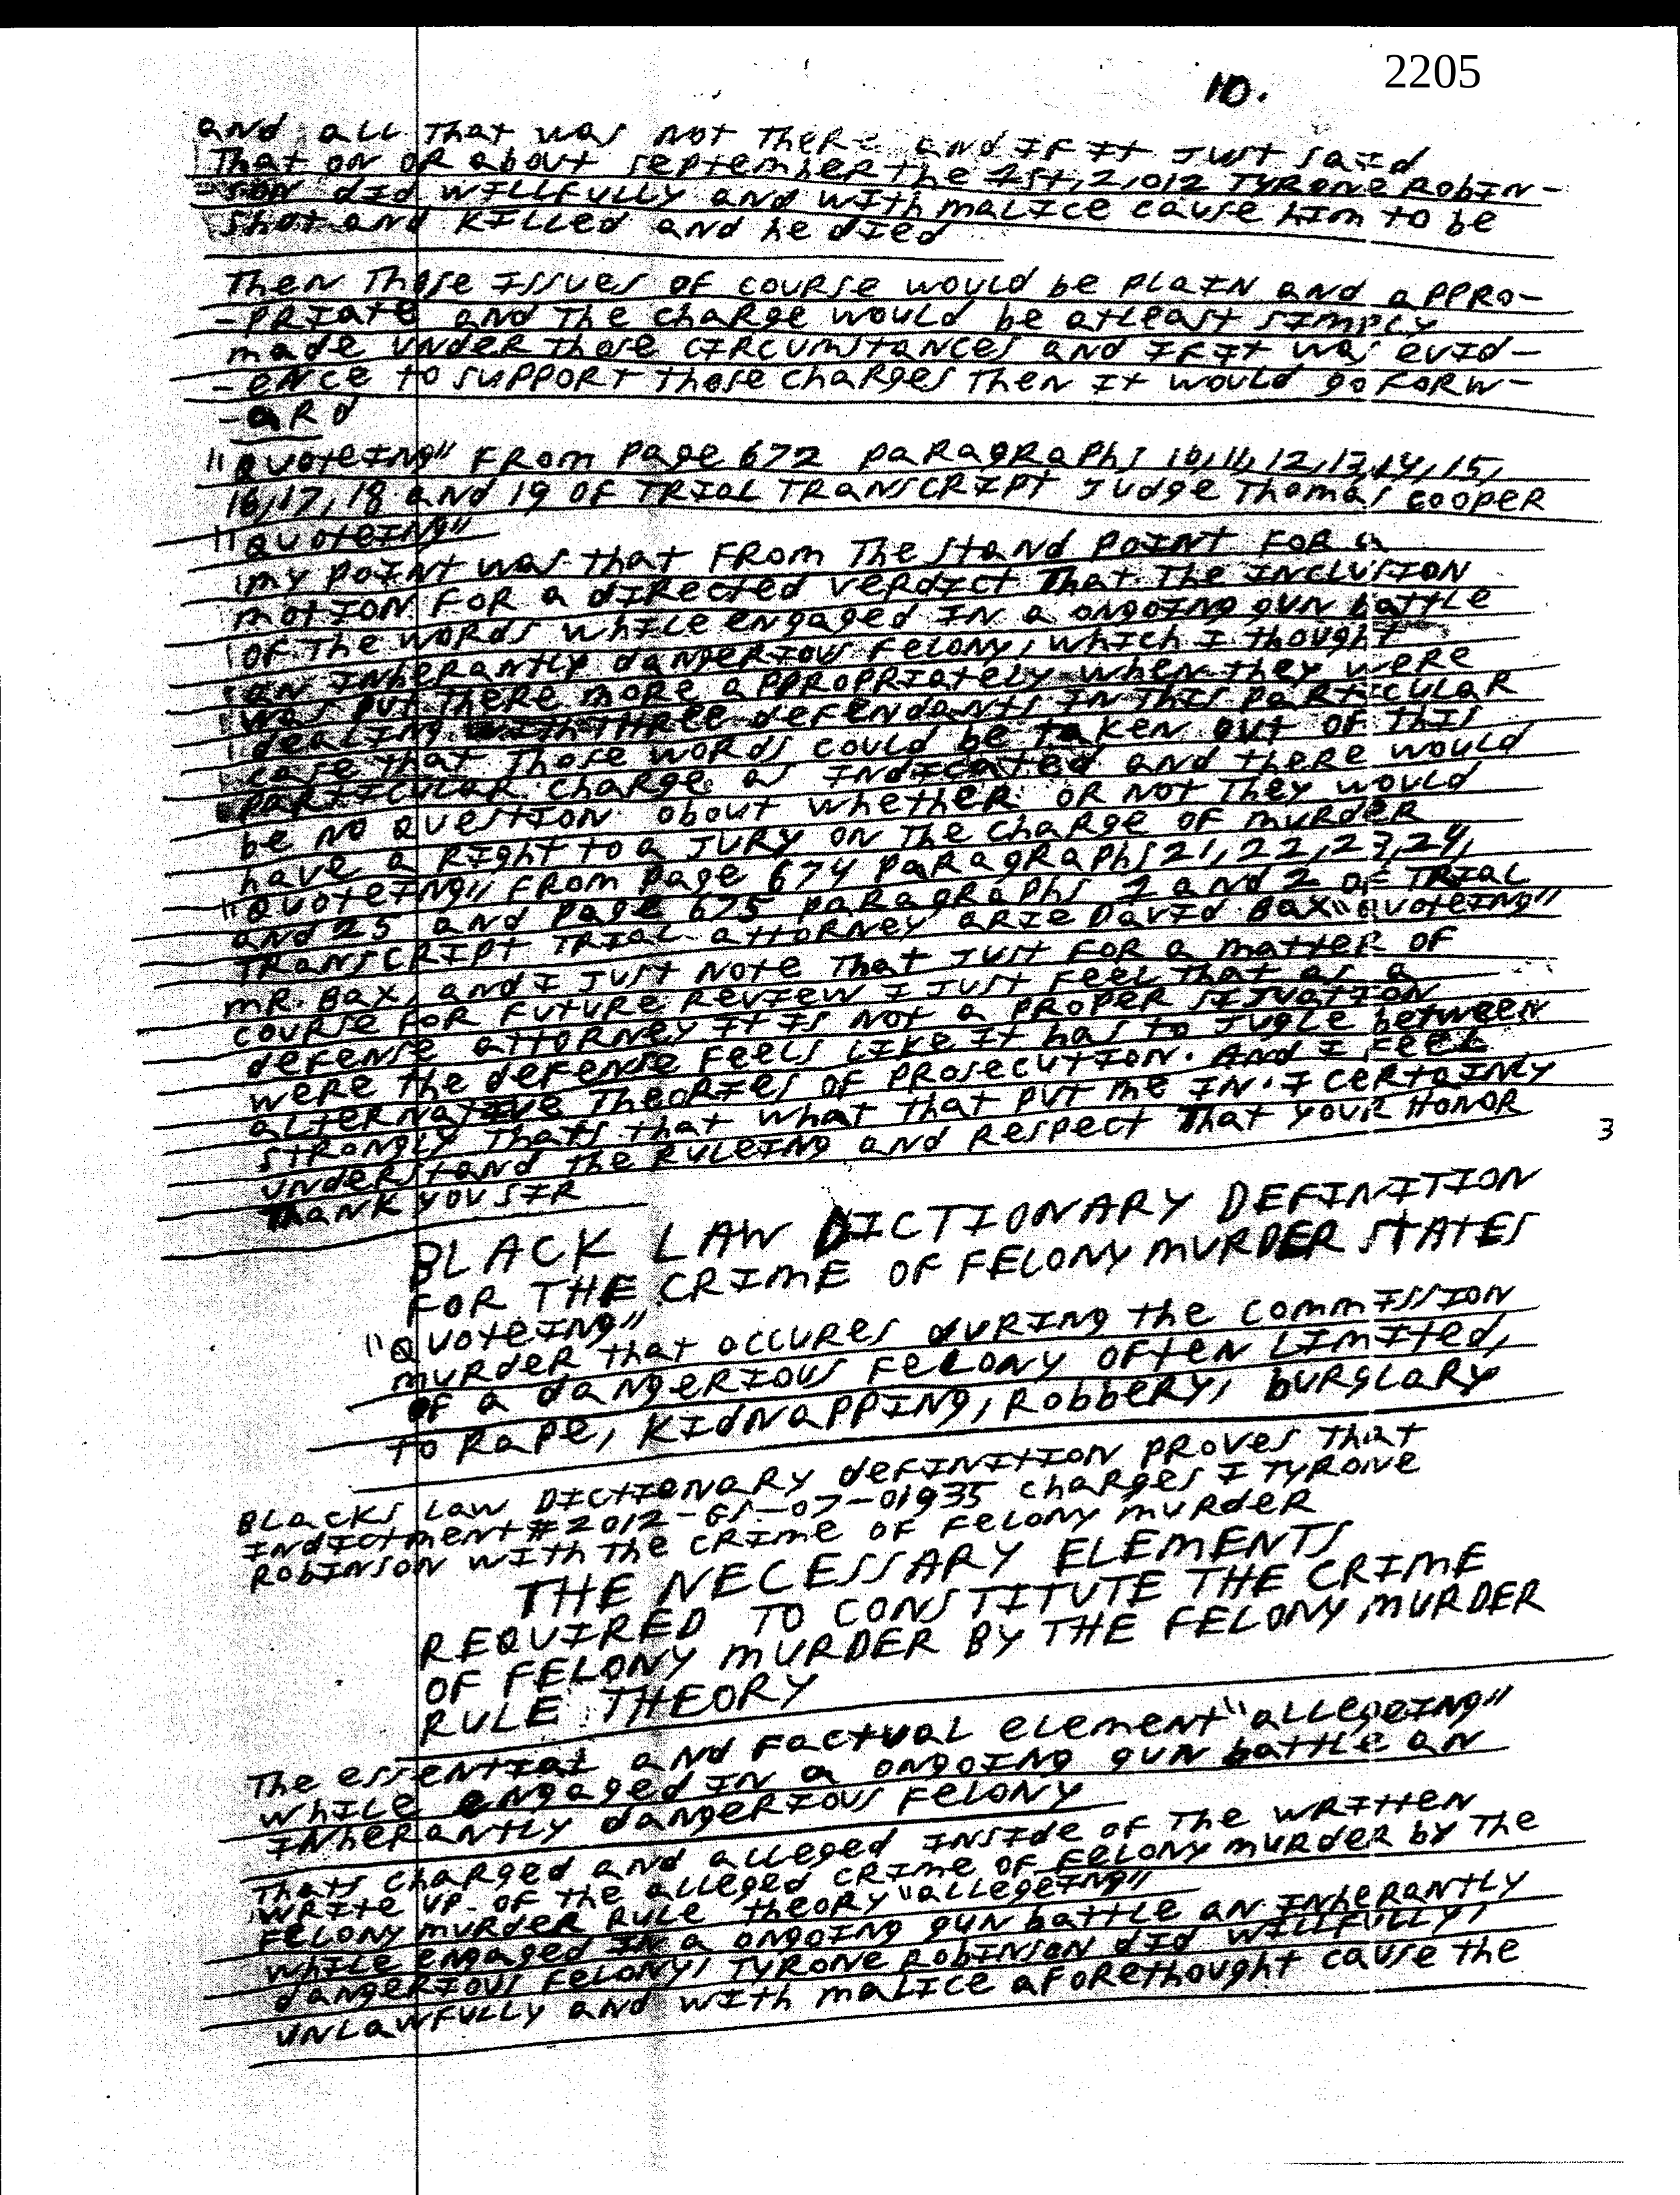 2205
10.
and all that was not there and if it just said
that on or about september the 1st, 2,012 Tyrone Robin-
-son did willfully and with malice cause him to be
shot and killed and he died
Then those issues of course would be plain and appro-
-priate and the charge would be atleast simply
made under those circumstances and if it was evid-
-ence to support those charges then it would go forw-
-ard
"Quoteing" from page 672 paragraphs 10,11,12,13,14,15,
16,17,18 and 19 of trial transcript Judge Thomas Cooper
"Quoteing"
my point was that from the stand point for a
motion for a directed verdict that the inclusion
of the words while engaged in a ongoing gun battle
an inherantly dangerious felony, which I thought
was put there more appropriately when they were
dealing with three defendants in this particular
case that those words could be taken out of this
particular charge as indicated and there would
be no question about whether or not they would
have a right to a jury on the charge of murder
"Quoteing" from page 674 paragraphs 21,22,23,24,
and 25 and page 675 paragraphs 1 and 2 of trial
transcript trial attorney arie David Bax "Quoteing"
mr. Bax, and I just note that just for a matter of
course for future review I just feel that as a
defense attorney it is not a proper situation
were the defense feels like it has to jugle between
alternative theories of prosecution. And I feel
strongly thats that what that put me in. I certainly
understand the ruleing and respect that your honor
thank you sir
3
BLACK LAW DICTIONARY DEFINITION
FOR THE CRIME OF FELONY MURDER STATES
"Quoteing"
murder that occures during the commission
of a dangerious felony often limited,
to rape, kidnapping, robbery, burglary
Blacks law Dictionary definition proves that
indictment # 2012-GS-07-01935 charges I Tyrone
Robinson with the crime of felony murder
THE NECESSARY ELEMENTS
REQUIRED TO CONSTITUTE THE CRIME
OF FELONY MURDER BY THE FELONY MURDER
RULE THEORY
The essential and factual element "allegeing"
while engaged in a ongoing gun battle an
inherantly dangerious felony
thats charged and alleged inside of the written
write up of the alleged crime of felony murder by the
felony murder rule theory "allegeing"
while engaged in a ongoing gun battle an inherantly
dangerious felony, Tyrone Robinson did willfully,
unlawfully and with malice aforethought cause the